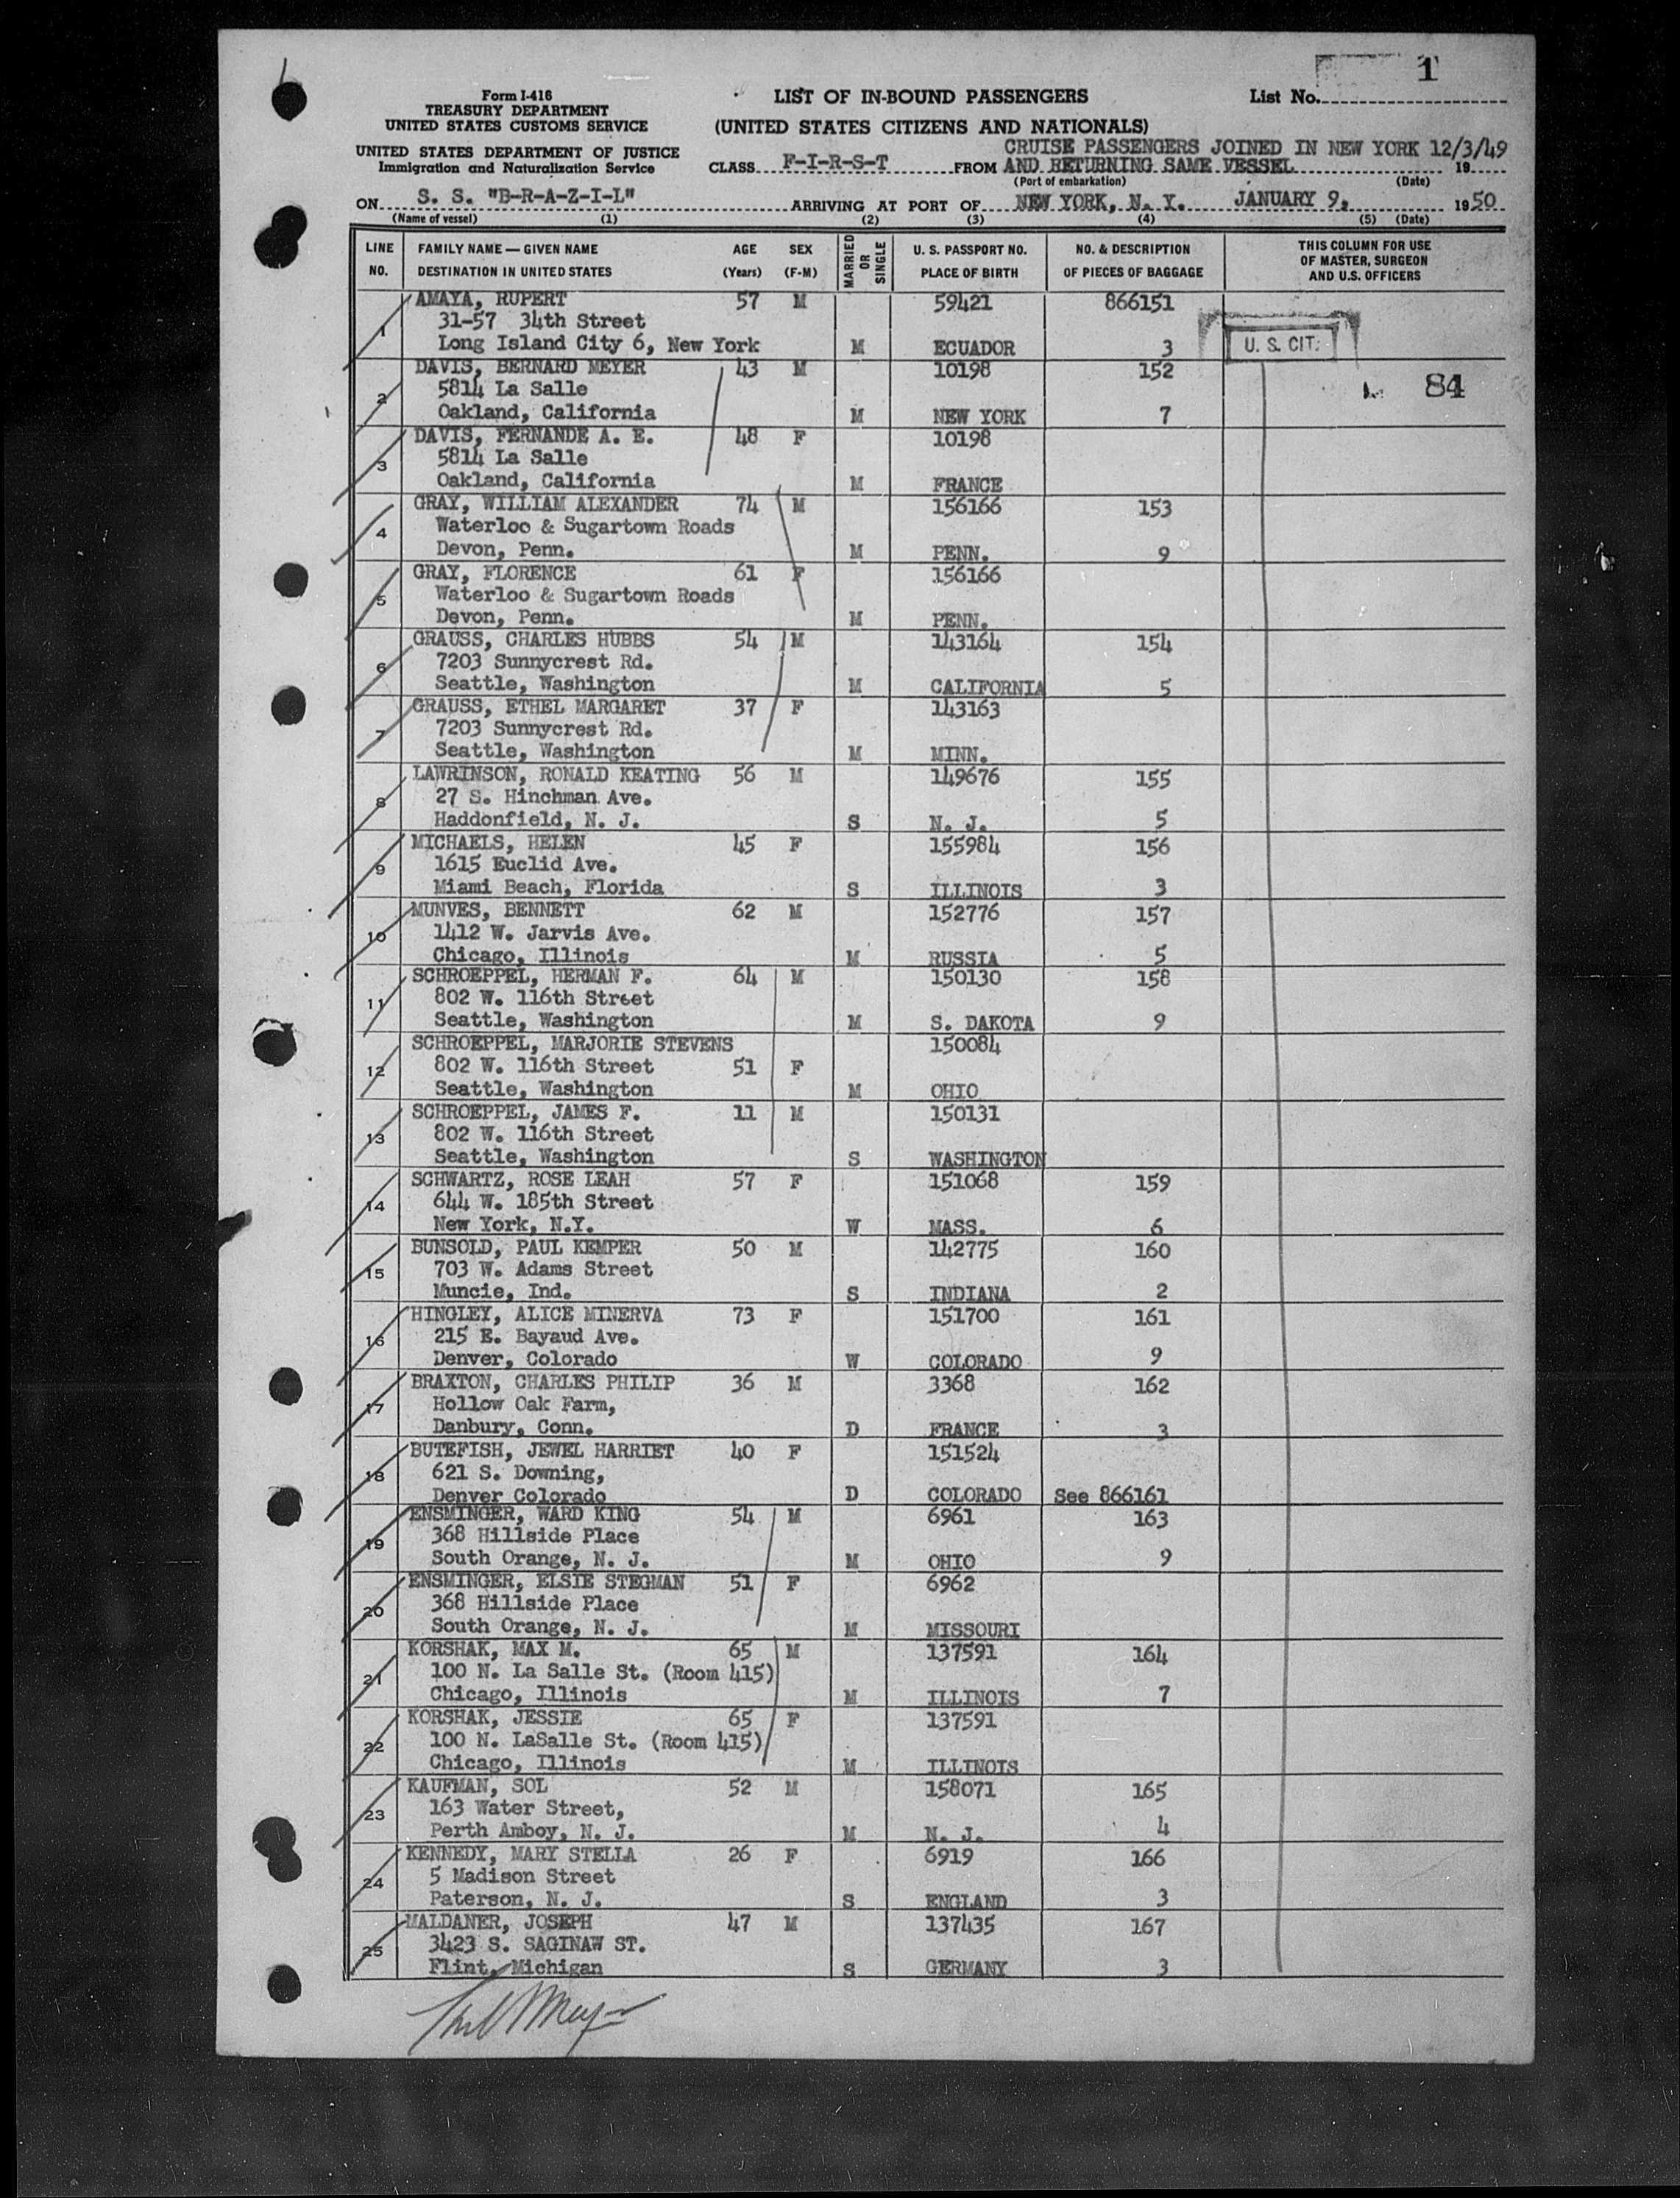 1
Form I-416
TREASURY DEPARTMENT
UNITED STATES CUSTOMS SERVICE
UNITED STATES DEPARTMENT OF JUSTICE
Immigration and Naturalization Service
LIST OF IN-BOUND PASSENGERS
(UNITED STATES CITIZENS AND NATIONALS)
List No.
CRUISE PASSENGERS JOINED IN NEW YORK 12/3/49
CLASS F-I-R-S-T FROM AND RETURNING SAME VESSEL 19
(Port of embarkation) (Date)
ON S. S. "B-R-A-Z-I-L" ARRIVING AT PORT OF NEW YORK, N. Y. JANUARY 9, 1950
(Name of vessel) (1) (2) (3) (4) (5) (Date)
LINE NO. FAMILY NAME — GIVEN NAME DESTINATION IN UNITED STATES AGE (Years) SEX (F-M) MARRIED OR SINGLE U. S. PASSPORT NO. PLACE OF BIRTH NO. & DESCRIPTION OF PIECES OF BAGGAGE THIS COLUMN FOR USE OF MASTER, SURGEON AND U.S. OFFICERS
AMAYA, RUPERT 57 M 59421 866151
1 31-57 34th Street
Long Island City 6, New York M ECUADOR 3 U. S. CIT.
DAVIS, BERNARD MEYER 43 M 10198 152
2 5814 La Salle 84
Oakland, California M NEW YORK 7
DAVIS, FERNANDE A. E. 48 F 10198
3 5814 La Salle
Oakland, California M FRANCE
GRAY, WILLIAM ALEXANDER 74 M 156166 153
4 Waterloo & Sugartown Roads
Devon, Penn. M PENN. 9
GRAY, FLORENCE 61 F 156166
5 Waterloo & Sugartown Roads
Devon, Penn. M PENN.
GRAUSS, CHARLES HUBBS 54 M 143164 154
6 7203 Sunnycrest Rd.
Seattle, Washington M CALIFORNIA 5
GRAUSS, ETHEL MARGARET 37 F 143163
7 7203 Sunnycrest Rd.
Seattle, Washington M MINN.
LAWRINSON, RONALD KEATING 56 M 149676 155
8 27 S. Hinchman Ave.
Haddonfield, N. J. S N. J. 5
MICHAELS, HELEN 45 F 155984 156
9 1615 Euclid Ave.
Miami Beach, Florida S ILLINOIS 3
MUNVES, BENNETT 62 M 152776 157
10 1412 W. Jarvis Ave.
Chicago, Illinois M RUSSIA 5
SCHROEPPEL, HERMAN F. 64 M 150130 158
11 802 W. 116th Street
Seattle, Washington M S. DAKOTA 9
SCHROEPPEL, MARJORIE STEVENS 150084
12 802 W. 116th Street 51 F
Seattle, Washington M OHIO
SCHROEPPEL, JAMES F. 11 M 150131
13 802 W. 116th Street
Seattle, Washington S WASHINGTON
SCHWARTZ, ROSE LEAH 57 F 151068 159
14 644 W. 185th Street
New York, N.Y. W MASS. 6
BUNSOLD, PAUL KEMPER 50 M 142775 160
15 703 W. Adams Street
Muncie, Ind. S INDIANA 2
HINGLEY, ALICE MINERVA 73 F 151700 161
16 215 E. Bayaud Ave.
Denver, Colorado W COLORADO 9
BRAXTON, CHARLES PHILIP 36 M 3368 162
17 Hollow Oak Farm,
Danbury, Conn. D FRANCE 3
BUTEFISH, JEWEL HARRIET 40 F 151524
18 621 S. Downing,
Denver Colorado D COLORADO See 866161
ENSMINGER, WARD KING 54 M 6961 163
19 368 Hillside Place
South Orange, N. J. M OHIO 9
ENSMINGER, ELSIE STEGMAN 51 F 6962
20 368 Hillside Place
South Orange, N. J. M MISSOURI
KORSHAK, MAX M. 65 M 137591 164
21 100 N. La Salle St. (Room 415)
Chicago, Illinois M ILLINOIS 7
KORSHAK, JESSIE 65 F 137591
22 100 N. LaSalle St. (Room 415)
Chicago, Illinois M ILLINOIS
KAUFMAN, SOL 52 M 158071 165
23 163 Water Street,
Perth Amboy, N. J. M N. J. 4
KENNEDY, MARY STELLA 26 F 6919 166
24 5 Madison Street
Paterson, N. J. S ENGLAND 3
MALDANER, JOSEPH 47 M 137435 167
25 3423 S. SAGINAW ST.
Flint, Michigan S GERMANY 3